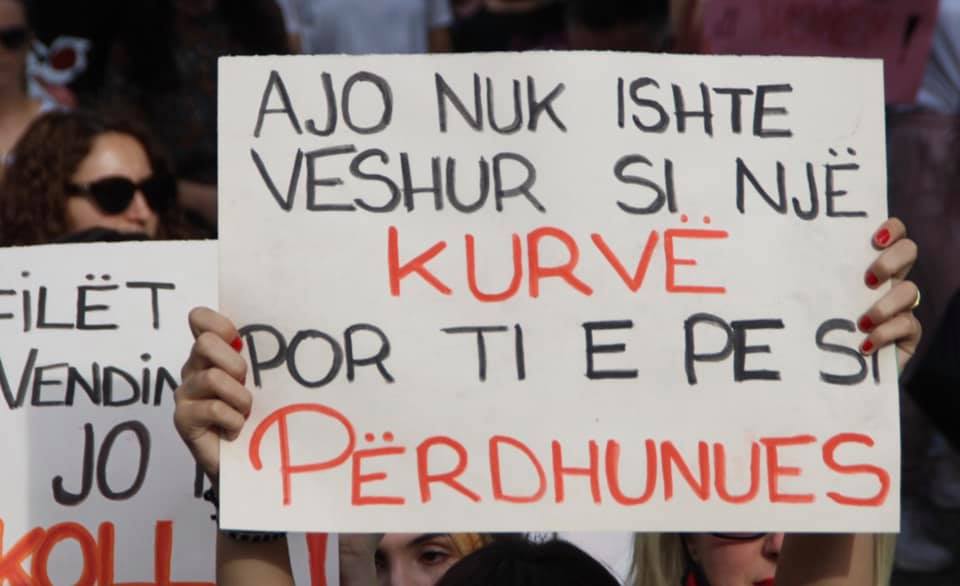 AJO NUK ISHTE
VESHUR SI NJË
KURVË
POR TI E PE SI
PËRDHUNUES
JO